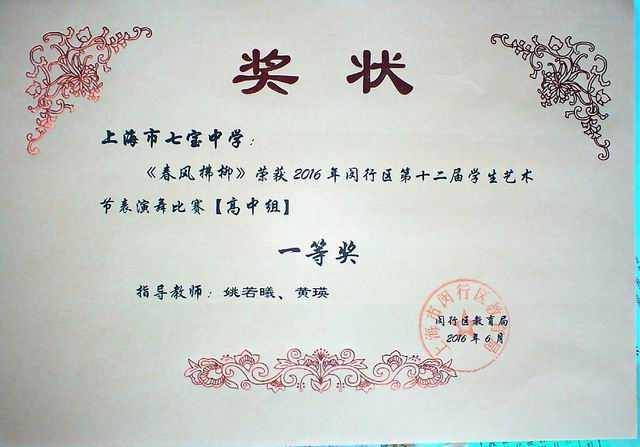 奖状
上海市七宝中学：
《春风拂柳》荣获2016年闵行区第十二届学生艺术
节表演舞比赛【高中组】
一等奖
指导教师：姚若曦、黄瑛
上海市闵行区教育局
闵行区教育局
2016年6月